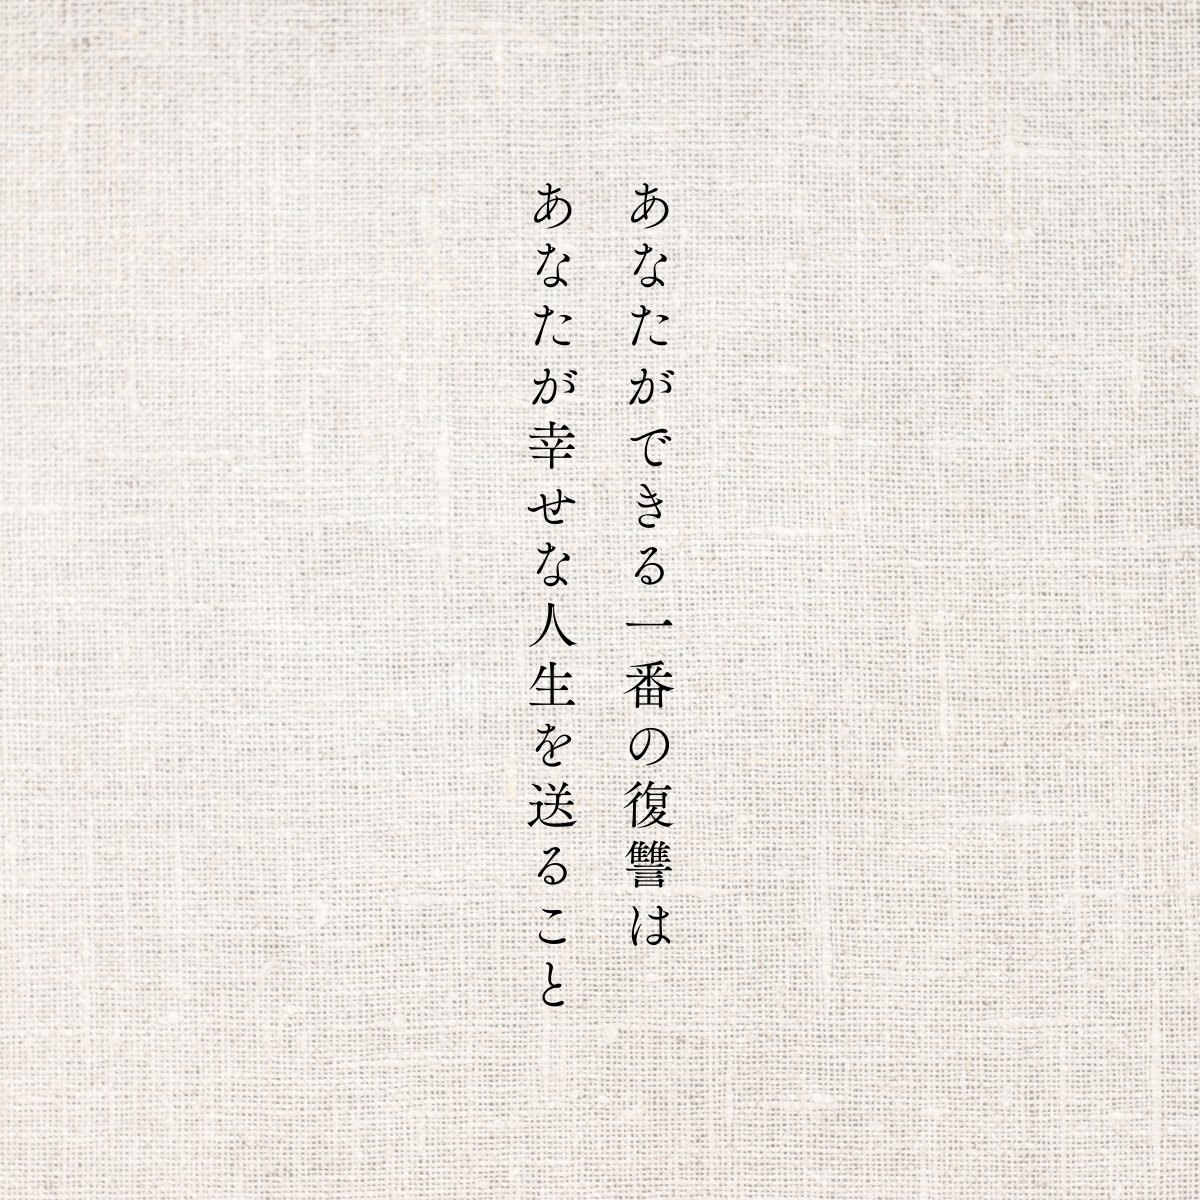 あなたができる一番の復讐は
あなたが幸せな人生を送ること